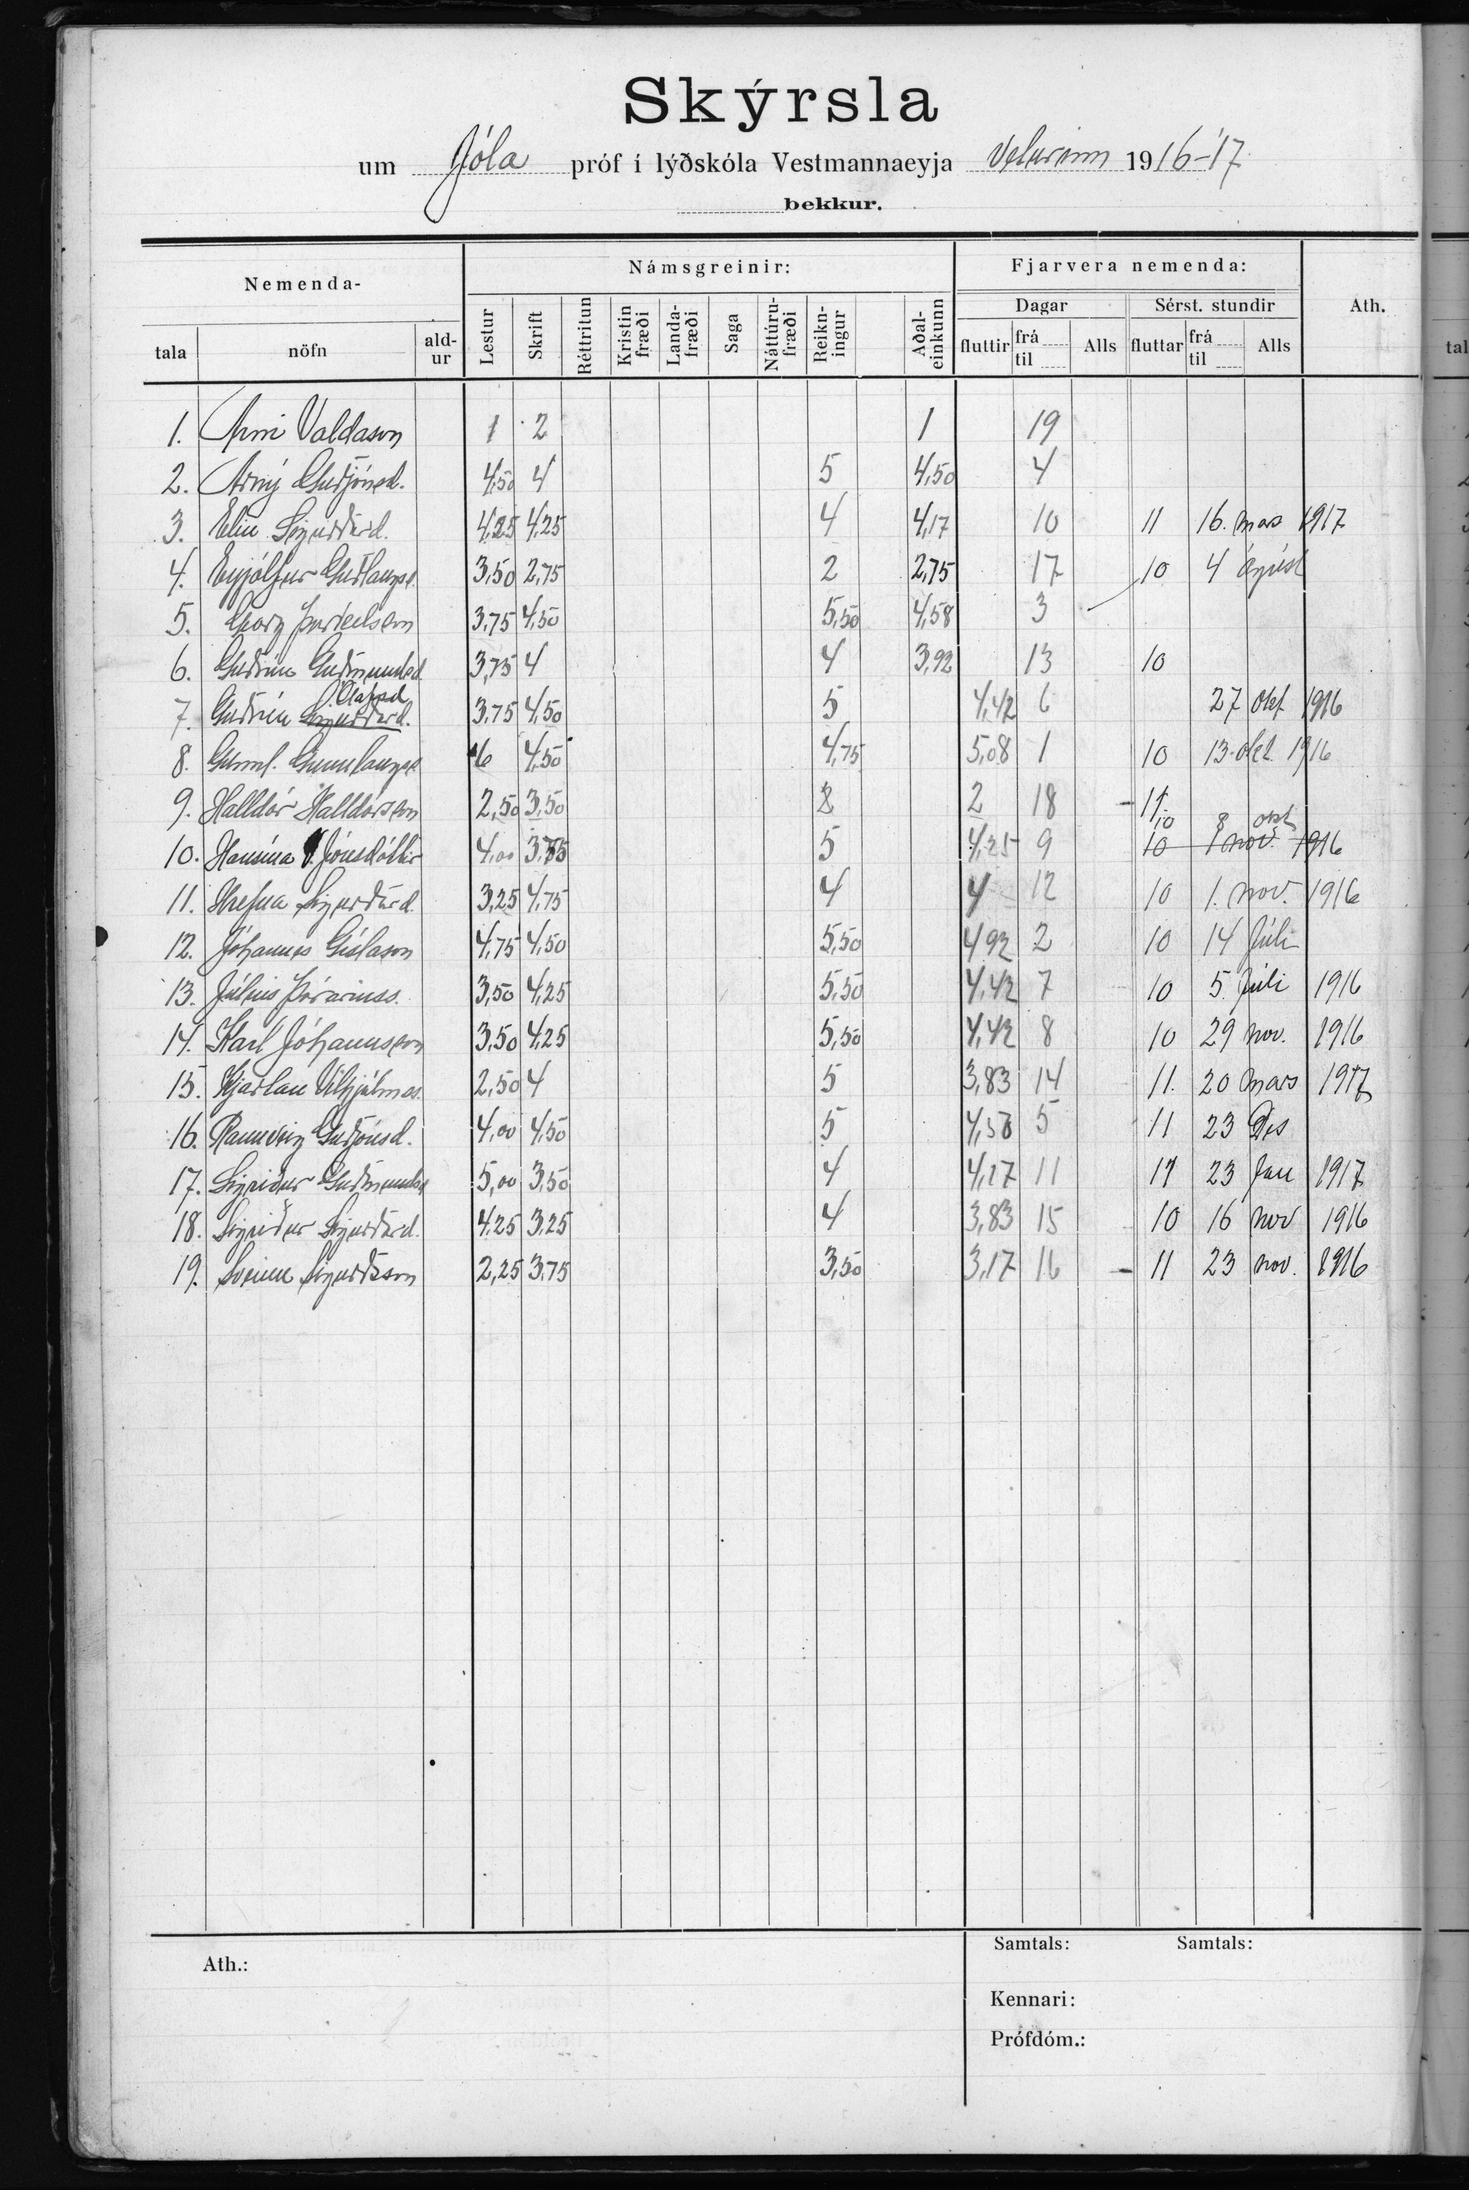 Skýrsla
um Jóla próf í lýðskóla Vestmannaeyja Veturinn 1916-'17
bekkur.
Nemenda- Námsgreinir: Fjarvera nemenda: Ath.
Dagar Sérst. stundir
tala nöfn ald-ur Lestur Skrift Réttritun Kristin fræði Landa-fræði Saga Náttúru-fræði Reikn-ingur Aðal-einkunn fluttir frá til Alls fluttar frá til Alls
1. Árni Valdason 1 2 1 19
2. Árný Guðjónsd. 4,50 4 5 4,50 4
3. Elin Sigurðard. 4,25 4,25 4 4,17 10 11 16. mars 1917
4. Eyjólfur Guðlaugss. 3,50 2,75 2 2,75 17 10 4 ágúst
5. Georg Þorkelsson 3,75 4,50 5,50 4,58 3
6. Guðrún Guðmundsd. 3,75 4 4 3,92 13 10
Ólafsd.
7. Guðrún Sigurðard. 3,75 4,50 5 4,42 6 27 okt 1916
8. Gunnl. Gunnlaugss. 6 4,50 4,75 5,08 1 10 13. okt. 1916
9. Halldór Halldórsson 2,50 3,50 2 18 11
10 8 okt
10. Hansína Jónsdóttir 4,00 3,75 5 4,25 9 10 1 nov. 1916
11. Hrefna Sigurðard. 3,25 4,75 4 4 12 10 1. nov. 1916
12. Jóhannes Gíslason 4,75 4,50 5,50 4,92 2 10 14 Júli
13. Júlíus Þórarinss. 3,50 4,25 5,50 4,42 7 10 5. Júli 1916
14. Karl Jóhannsson 3,50 4,25 5,50 4,42 8 10 29 nov. 1916
15. Kjartan Vilhjálmss. 2,50 4 5 3,83 14 11. 20 mars 1917
16. Rannveig Guðjónsd. 4,00 4,50 5 4,50 5 11 23 Des
17. Sigríður Guðmundsd 5,00 3,50 4 4,17 11 11 23 Jan 1917
18. Sigríður Sigurðard. 4,25 3,25 4 3,83 15 10 16 nov 1916
19. Sveinn Sigurðsson 2,25 3,75 3,50 3,17 16 11 23 nov. 1916
Samtals: Samtals:
Ath.:
Kennari:
Prófdóm.: